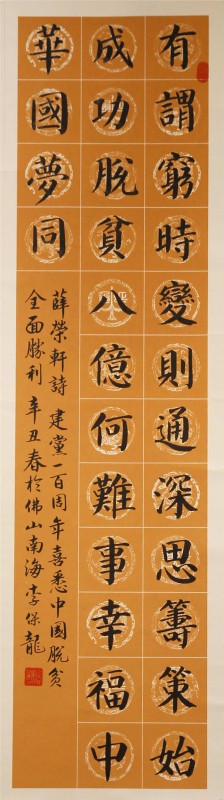 有謂窮時變則通深思籌策始
成功脫貧八億何難事幸福中
華國夢同
薛榮軒詩 建黨一百周年喜悉中國脫貧
全面勝利 辛丑春於佛山南海李保龍